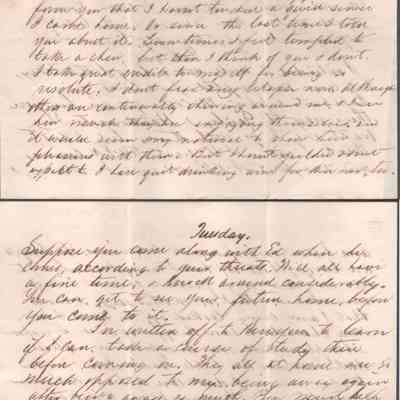 form you that I havn't tasted a
I came home. Or since the last time I told
you about it. Sometimes I feel tempted to
take a chew, but then I think of you & don't.
I take great credit to myself for being so
resolute. I don't
they are continually chewing around me, & I
how much they are enjoying themselves, and
it would seem only natural to
pleasures with them. But I havn't yielded
I have quit drinking wine for
Tuesday.
Suppose you come along with Ed when he
comes, according to your threats. We'll all have
a fine time, & knock around considerably.
You can get to see your future home, before
you come to it.
I've written off to to learn
if I can take a course of study there
before coming on. They all at home are so
much opposed to my being away again
after being away so much